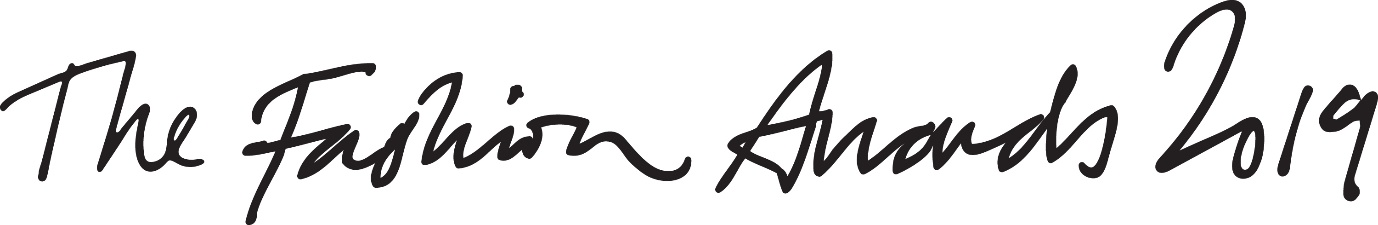 The Fashion Awards 2019